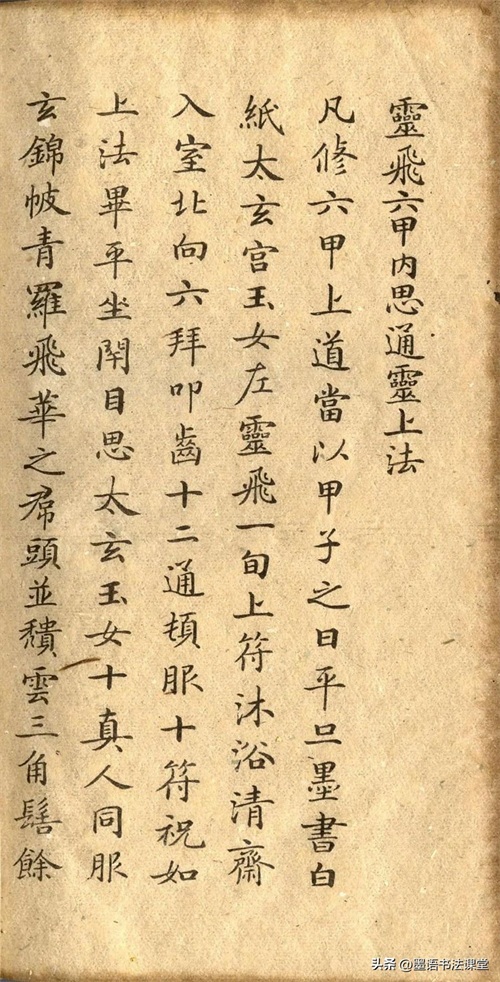 靈飛六甲内思通靈上法
凡修六甲上道當以甲子之日平旦墨書白
紙太玄宫玉女左靈飛一旬上符沐浴清齋
入室北向六拜叩齒十二通頓服十符祝如
上法畢平坐閇目思太玄玉女十真人同服
玄錦帔青羅飛華之帬頭並穨雲三角髻餘
头条 @墨语书法课堂